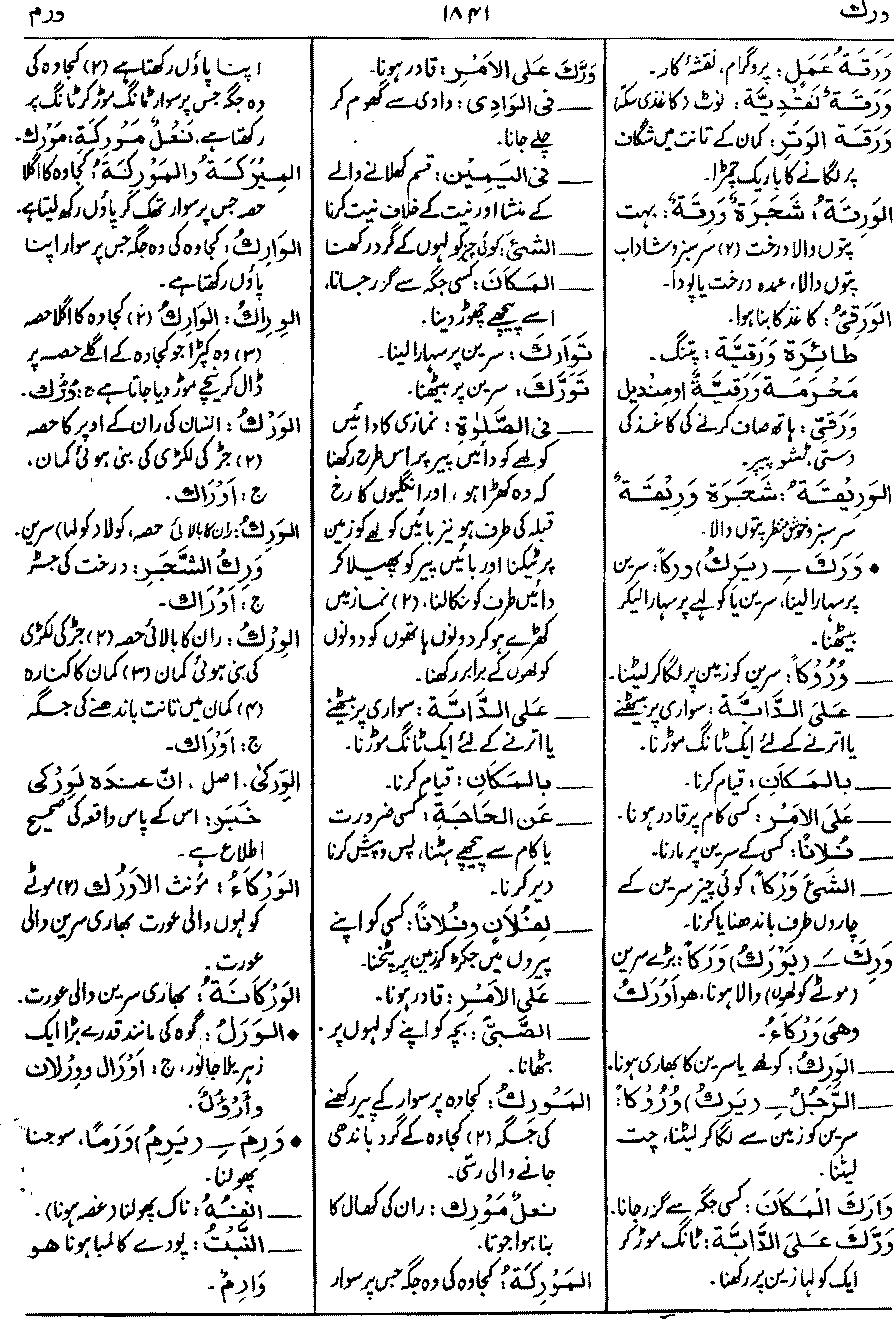 ورك
۱۸۴۱
ورم
وَرَقَةُ عَمَل: پروگرام، نقشۂ کار۔
وَرَقَةٌ نَقْدِيَّة: نوٹ (کاغذی سکہ)
وَرَقَةُ الوَتَرِ: کمان کے تانت میں شگاف
پر لگانے کا باریک چمڑا۔
الوَرِقَةُ: شَجَرَةٌ وَرِقَةٌ: بہت
پتوں والا درخت (۲) سرسبز و شاداب
پتوں والا، عمدہ درخت یا پودا۔
الوَرَقِيُّ: کاغذ کا بنا ہوا۔
طَائِرَة وَرَقِيَّة: پتنگ۔
مَحْرَمَة وَرَقِيَّةٌ او مِنديل
وَرَقِيّ: ہاتھ صاف کرنے کی کاغذ کی
دستی، ٹشو پیپر۔
الوَرِيقَةُ: شَجَرَة وَرِيقَةٌ
سرسبز و خوش منظر پتوں والا۔
• وَرَكَ ـِ (يَرِكُ) وركاً: سرین
پر سہارا لینا، سرین یا کولہے پر سہارا لیکر
بیٹھنا۔
— وُرُوْكاً: سرین کو زمین پر لگا کر لیٹنا۔
— عَلَى الدَّابَّة: سواری پر بیٹھنے
یا اترنے کے لئے ایک ٹانگ موڑنا۔
— بالمَكَانِ: قیام کرنا۔
— عَلَى الأمْرِ: کسی کام پر قادر ہونا۔
— فُلاناً: کسی کے سرین پر مارنا۔
— الشَيْءَ وَرْكاً: کوئی چیز سرین کے
چاروں طرف باندھنا یا کرنا۔
وَرِكَ ـَ (يَوْرَكُ) وَرَكاً: بڑے سرین
(موٹے کولھوں) والا ہونا، هو أَوْرَكُ
وهى وَرْكَاءُ۔
— الوَرِكُ: کولھے یا سرین کا بھاری ہونا۔
— الرَّجُلُ ـِ (يَرِكُ) وُرُوْكاً:
سرین کو زمین سے لگا کر لیٹنا، چت
لیٹنا۔
وَارَكَ الْمَكَانَ: کسی جگہ سے گزر جانا۔
وَرَّكَ عَلَى الدَّابَّة: ٹانگ موڑ کر
ایک کولہا زین پر رکھنا۔
وَرَّكَ عَلَى الأَمْرِ: قادر ہونا۔
— فى الوَادِى: وادی سے گھوم کر
چلے جانا۔
— فى اليَمِيْن: قسم کھلانے والے
کے منشا اور نیت کے خلاف نیت کرنا
— الشَئَ: کوئی چیز کولہوں کے گرد رکھنا
— المَكَانَ: کسی جگہ سے گزر جانا،
اسے پیچھے چھوڑ دینا۔
تَوَارَكَ: سرین پر سہارا لینا۔
تَوَرَّكَ: سرین پر بیٹھنا۔
— فى الصَّلوٰة: نمازی کا دائیں
کولھے کو دائیں پیر پر اس طرح رکھنا
کہ وہ کھڑا ہو، اور انگلیوں کا رخ
قبلہ کی طرف ہو نیز بائیں کولھے کو زمین
پر ٹیکنا اور بائیں پیر کو پھیلا کر
دائیں طرف کو نکالنا، (۲) نماز میں
کھڑے ہو کر دونوں ہاتھوں کو دونوں
کولھوں کے برابر رکھنا۔
— عَلى الدَّابَّة: سواری پر بیٹھنے
یا اترنے کے لئے ایک ٹانگ موڑنا۔
— بالمَكَانِ: قیام کرنا۔
— عَن الحَاجَةِ: کسی ضرورت
یا کام سے پیچھے ہٹنا، پس و پیش کرنا
دیر کرنا۔
— لِفُلَانٍ وفُلاناً: کسی کو اپنے
پیروں میں جکڑ کر زمین پر پٹخنا۔
— عَلى الأمْرِ: قادر ہونا۔
— الصَّبِىَّ: بچہ کو اپنے کولہوں پر
بٹھانا۔
المَوْرِكُ: کجاوہ پر سوار کے پیر رکھنے
کی جگہ (۲) کجاوہ کے گرد باندھی
جانے والی رسّی۔
نعلٌ مَوْرِك: ران کی کھال کا
بنا ہوا جوتا۔
المَوْرِكَةُ: کجاوہ کی وہ جگہ جس پر سوار
اپنا پاؤں رکھتا ہے (۲) کجاوہ کی
وہ جگہ جس پر سوار ٹانگ موڑ کر ٹانگ پر
رکھتا ہے، نَعْلٌ مَوْرِكَةٌ: مَوْرِك۔
المِيْرَكَةُ والمَوْرِكَةُ: کجاوہ کا اگلا
حصہ جس پر سوار تھک کر پاؤں رکھ لیتا ہے۔
الوَارِكُ: کجاوہ کی وہ جگہ جس پر سوار اپنا
پاؤں رکھتا ہے۔
الوِرَاكُ: الوَارِكُ (۲) کجاوہ کا اگلا حصہ
(۳) وہ کپڑا جو کجاوہ کے اگلے حصہ پر
ڈال کر نیچے موڑ دیا جاتا ہے ج: وُرُك۔
الوَرْكُ: انسان کی ران کے اوپر کا حصہ
(۲) جڑ کی لکڑی کی بنی ہوئی کمان،
ج: أَوْرَاك۔
الوَرِكُ: ران کا بالائی حصہ، کولا (کولہا) سرین۔
وَرِكُ الشَّجَرِ: درخت کی جڑ
ج: أَوْرَاك۔
الوِرْكُ: ران کا بالائی حصہ (۲) جڑ کی لکڑی
کی بنی ہوئی کمان (۳) کمان کا کنارہ
(۴) کمان میں تانت باندھنے کی جگہ
ج: أَوْرَاك۔
الوَرْكَى، اصل، انّ عنده لَوَرْكَى
خَبَر: اس کے پاس واقعہ کی صحیح
اطلاع ہے۔
الوَرْكَاءُ: مؤنث الأوْرَك (۲) موٹے
کولہوں والی عورت بھاری سرین والی
عورت۔
الوَرْكَانَةُ: بھاری سرین والی عورت۔
• الوَرَلُ: گوہ کی مانند قدرے بڑا ایک
زہریلا جانور، ج: أوْرَال ووِرْلان
وأَرْؤُلٌ۔
• وَرِمَ ـِ (يَرِمُ) وَرَمًا، سوجنا
پھولنا۔
— انفُهُ: ناک پھولنا (غصہ ہونا)۔
— النَّبْتُ: پودے کا لمبا ہونا هو
وَارِمٌ۔